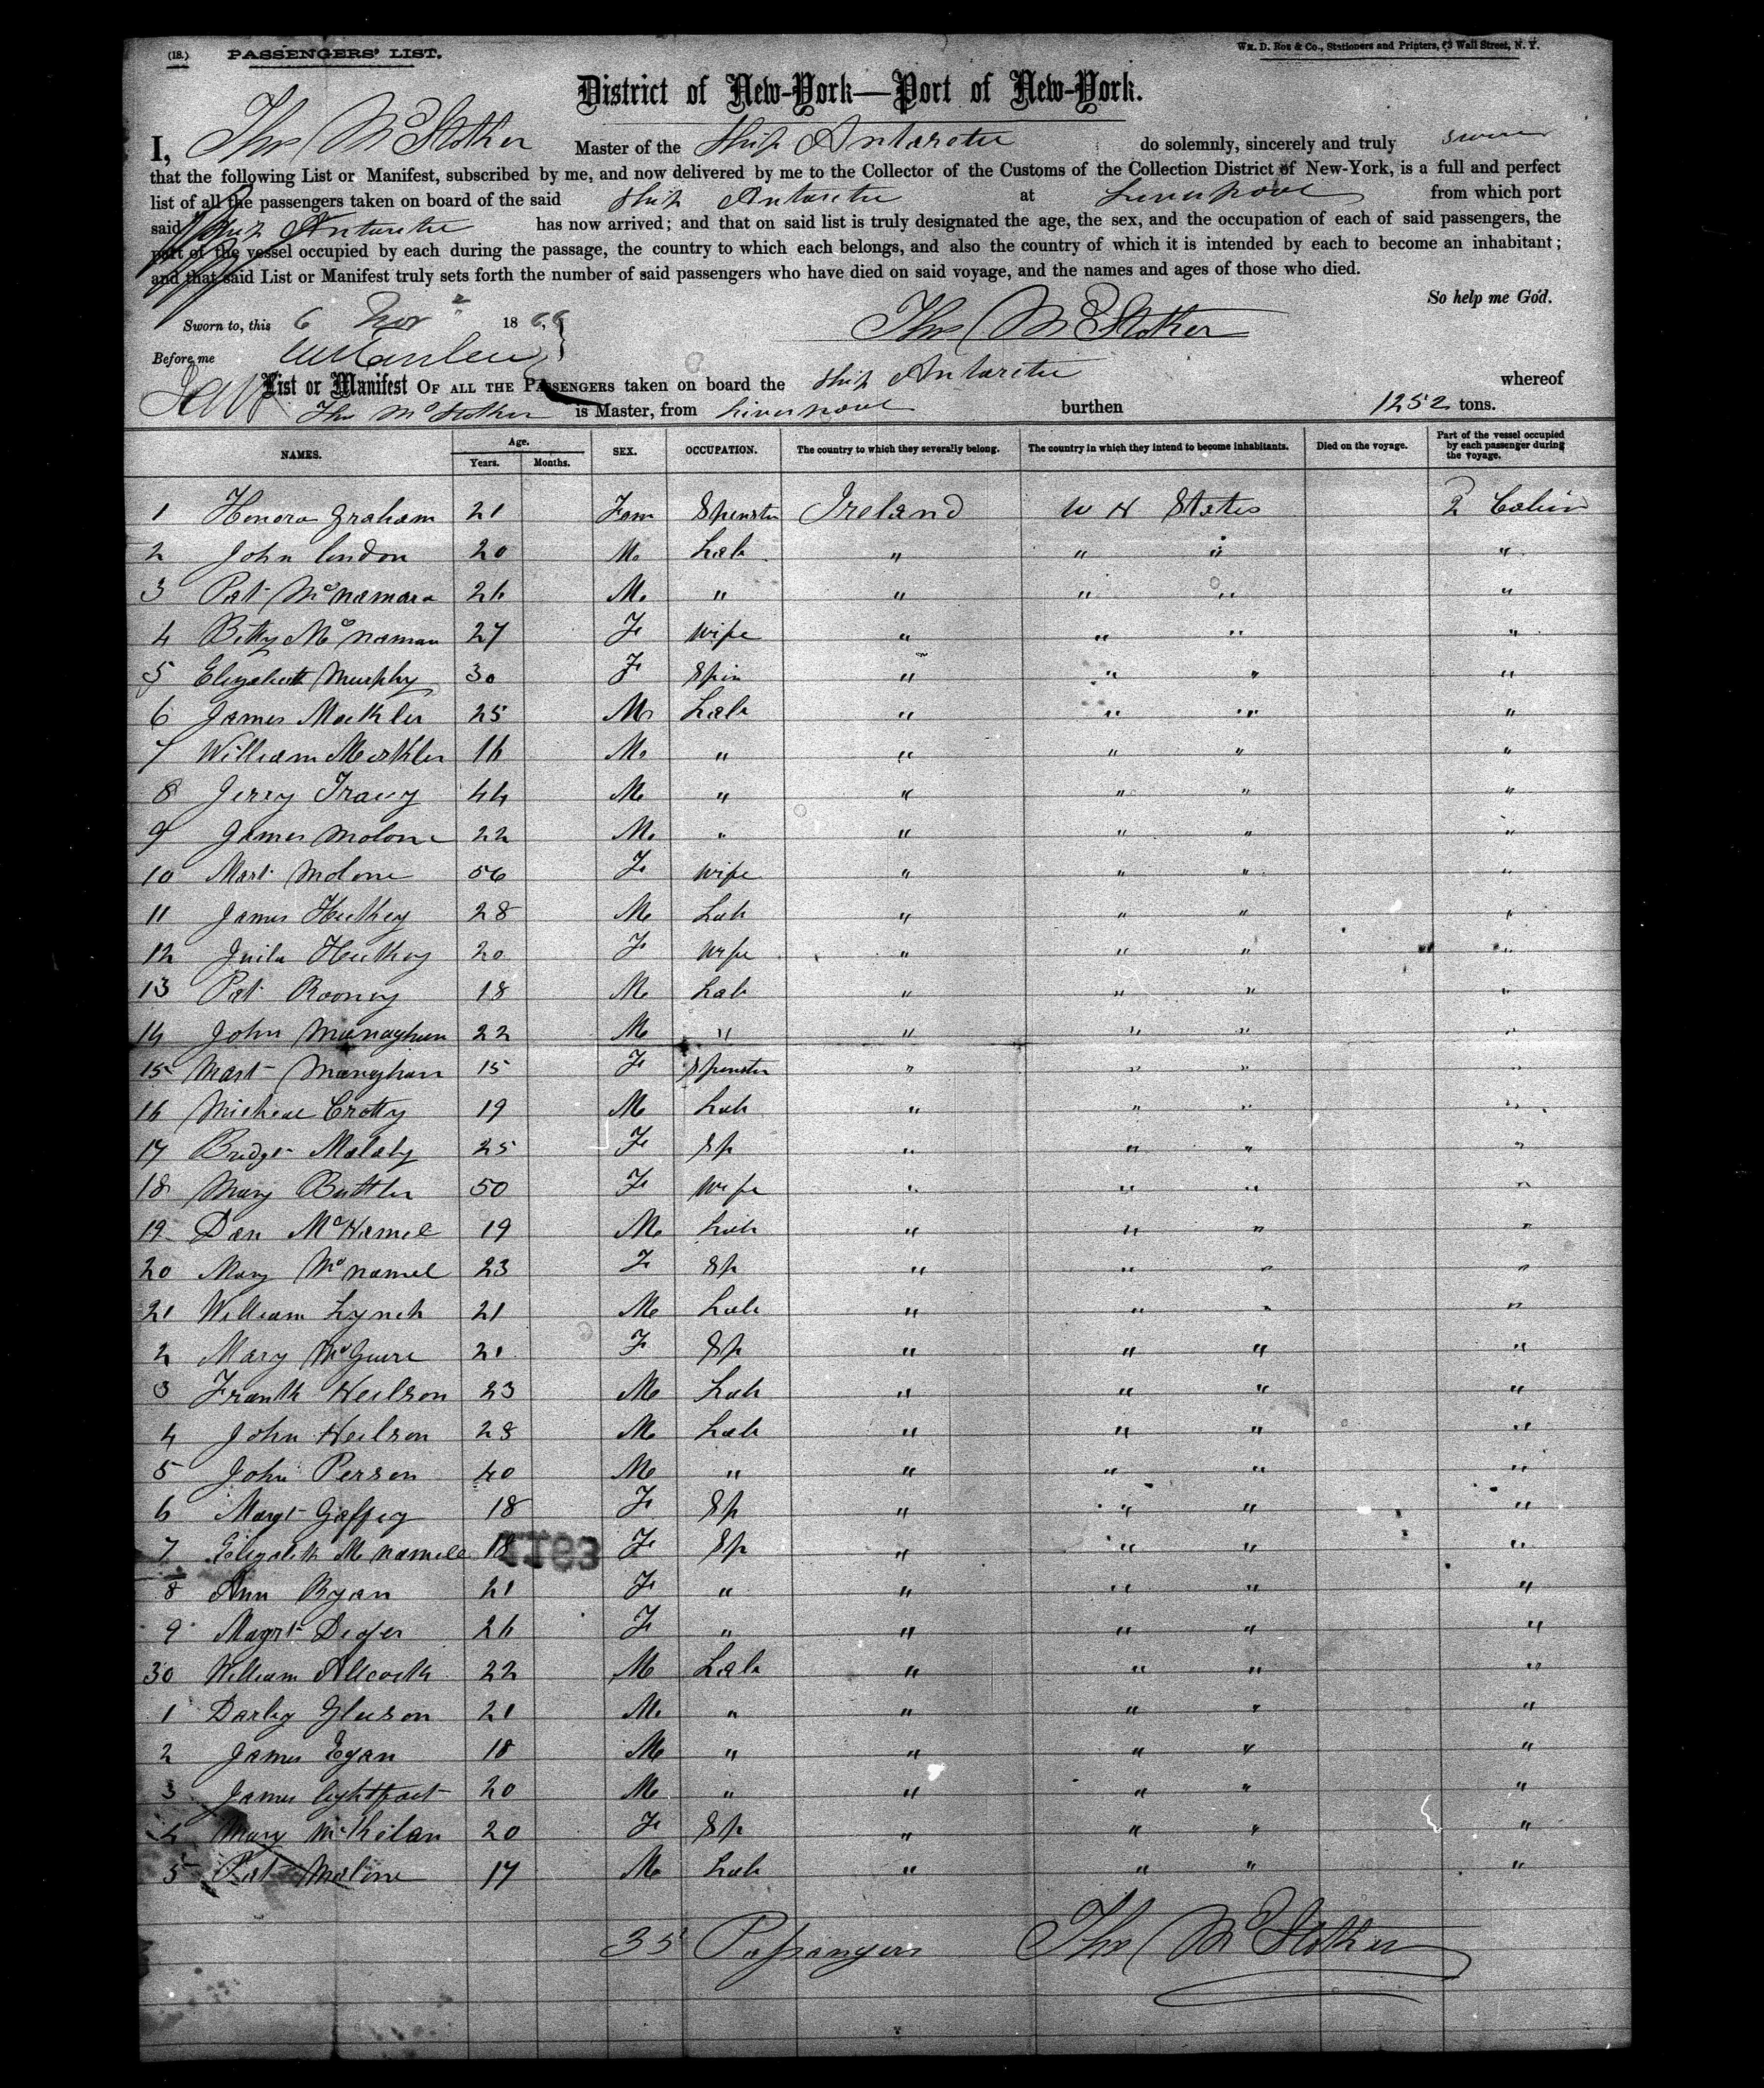 (18.) PASSENGERS' LIST. WM. D. ROE & CO., STATIONERS AND PRINTERS, 63 WALL STREET, N. Y.
District of New-York—Port of New-York.
I, Thos McStother Master of the Ship Antarctic do solemnly, sincerely and truly swear
that the following List or Manifest, subscribed by me, and now delivered by me to the Collector of the Customs of the Collection District of New-York, is a full and perfect
list of all the passengers taken on board of the said Ship Antarctic at Liverpool from which port
said Ship Antarctic has now arrived; and that on said list is truly designated the age, the sex, and the occupation of each of said passengers, the
part of the vessel occupied by each during the passage, the country to which each belongs, and also the country of which it is intended by each to become an inhabitant;
and that said List or Manifest truly sets forth the number of said passengers who have died on said voyage, and the names and ages of those who died.
So help me God.
Sworn to, this 6 Novr 18 Thos McStother
Before me
List or Manifest OF ALL THE PASSENGERS taken on board the Ship Antarctic whereof
Thos McStother is Master, from Liverpool burthen 1252 tons.
NAMES. Age. Years. Months. SEX. OCCUPATION. The country to which they severally belong. The country in which they intend to become inhabitants. Died on the voyage. Part of the vessel occupied by each passenger during the voyage.
1 Honora Graham 21 Fem Spenster Ireland States 2 Cabin
2 John Condon 20 M. Lab " " " "
3 Pat McNamara 26 M. " " " " "
4 Betty McNamara 27 F wife " " " "
5 Elizabeth Murphy 30 F Spin " " " "
6 James Mackler 25 M Lab " " " "
7 William Mackler 16 M. " " " " "
8 Jerry Tracy 44 M " " " " "
9 James Molone 22 M. " " " " "
10 Mart Molone 56 F wife " " " "
11 James Huthey 28 M Lab " " " "
12 Huthey 20 F wife " " " "
13 Pat Rooney 18 M Lab " " " "
14 John Monaghan 22 M " " " " "
15 Mart Managhan 15 F Spenster " " " "
16 Micheal Crotty 19 M Lab " " " "
17 Bridgt Malaly 25 F Sp " " " "
18 Mary Buttler 50 F wife " " " "
19 Dan McNamee 19 M Lab " " " "
20 Mary McNamee 23 F Sp " " " "
21 William Lynch 21 M Lab " " " "
2 Mary McGuire 21 F Sp " " " "
3 Frank Neilson 23 M Lab " " " "
4 John Neilson 28 M Lab " " " "
5 John Person 40 M " " " " "
6 Margt Gaffey 18 F Sp " " " "
7 Elizabeth McNamee 18 F Sp " " " "
8 Ann Ryan 21 F " " " " "
9 Magrt Dwyer 26 F " " " " "
30 William Allcock 22 M Lab " " " "
1 Darby Gleeson 21 M. " " " " "
2 James Egan 18 M " " " " "
3 James Lightfoot 20 M " " " " "
4 Mary McKilan 20 F Sp " " " "
5 Pat Malone 17 M Lab " " " "
35 Passangers Thos McStother